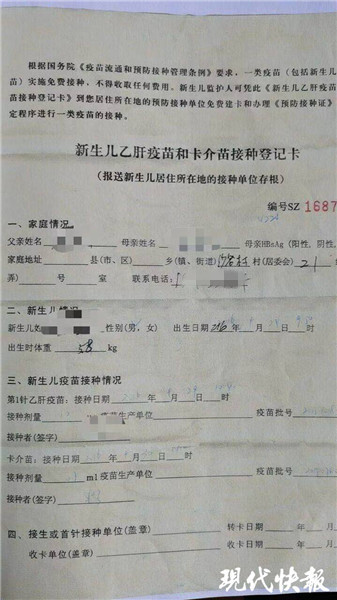 根据国务院《疫苗流通和预防接种管理条例》要求，一类疫苗（包括新生儿
苗）实施免费接种，不得收取任何费用。新生儿监护人可凭此《新生儿乙肝疫苗
苗接种登记卡》到您居住所在地的预防接种单位免费建卡和办理《预防接种证》
定程序进行一类疫苗的接种。
新生儿乙肝疫苗和卡介苗接种登记卡
（报送新生儿居住所在地的接种单位存根）
编号SZ 1687
一、家庭情况
父亲姓名 母亲姓名 母亲HBsAg (阳性, 阴性,
家庭地址 县(市、区) 乡(镇、街道) 村 村(居委会) 21
弄) 号 室 联系电话:
二、新生儿情况
新生儿姓 性别(男, 女) 出生日期 年 月 日 时
出生时体重 58 kg
三、新生儿疫苗接种情况
第1针乙肝疫苗: 接种日期 年 月 日 时
接种剂量 疫苗生产单位 疫苗批号
接种者(签字)
卡介苗: 接种日期 年 月 日 时
接种剂量 ml疫苗生产单位 疫苗批号
接种者(签字)
四、接生或首针接种单位(盖章) 转卡日期 年 月
收卡单位(盖章) 收卡日期 年 月
现代快报